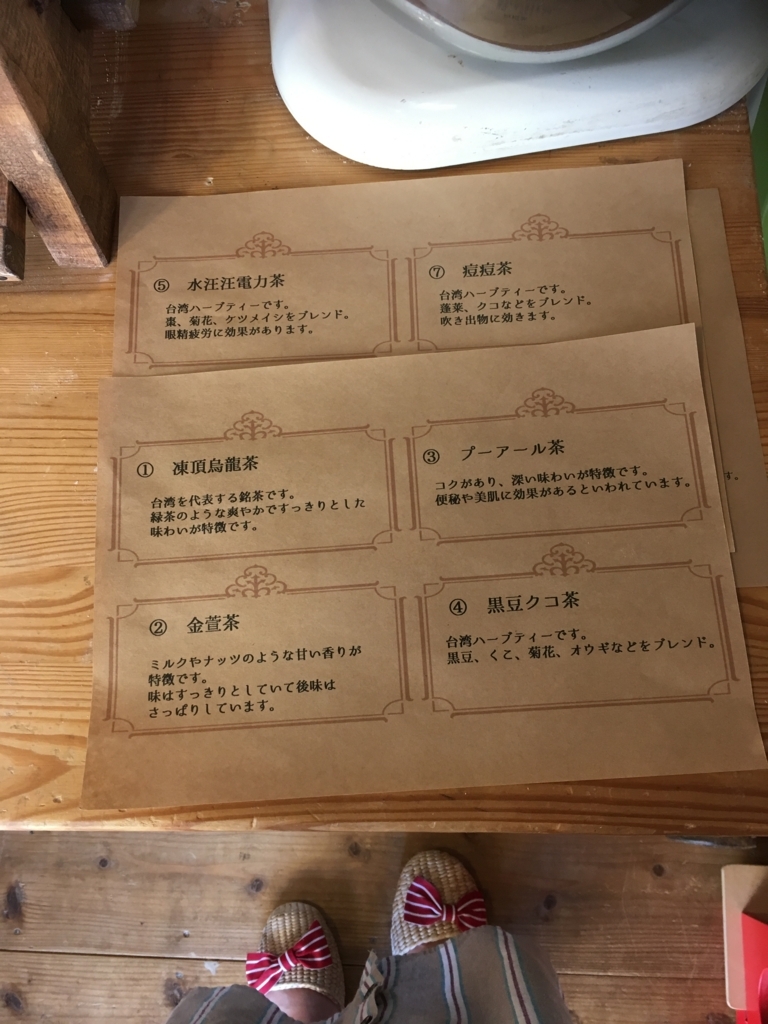 ⑤ 水汪汪電力茶
台湾ハーブティーです。
棗、菊花、ケツメイシをブレンド。
眼精疲労に効果があります。
⑦ 痘痘茶
台湾ハーブティーです。
蓬莱、クコなどをブレンド。
吹き出物に効きます。
① 凍頂烏龍茶
台湾を代表する銘茶です。
緑茶のような爽やかですっきりとした
味わいが特徴です。
③ プーアール茶
コクがあり、深い味わいが特徴です。
便秘や美肌に効果があるといわれています。
② 金萱茶
ミルクやナッツのような甘い香りが
特徴です。
味はすっきりとしていて後味は
さっぱりしています。
④ 黒豆クコ茶
台湾ハーブティーです。
黒豆、くこ、菊花、オウギなどをブレンド。
す。